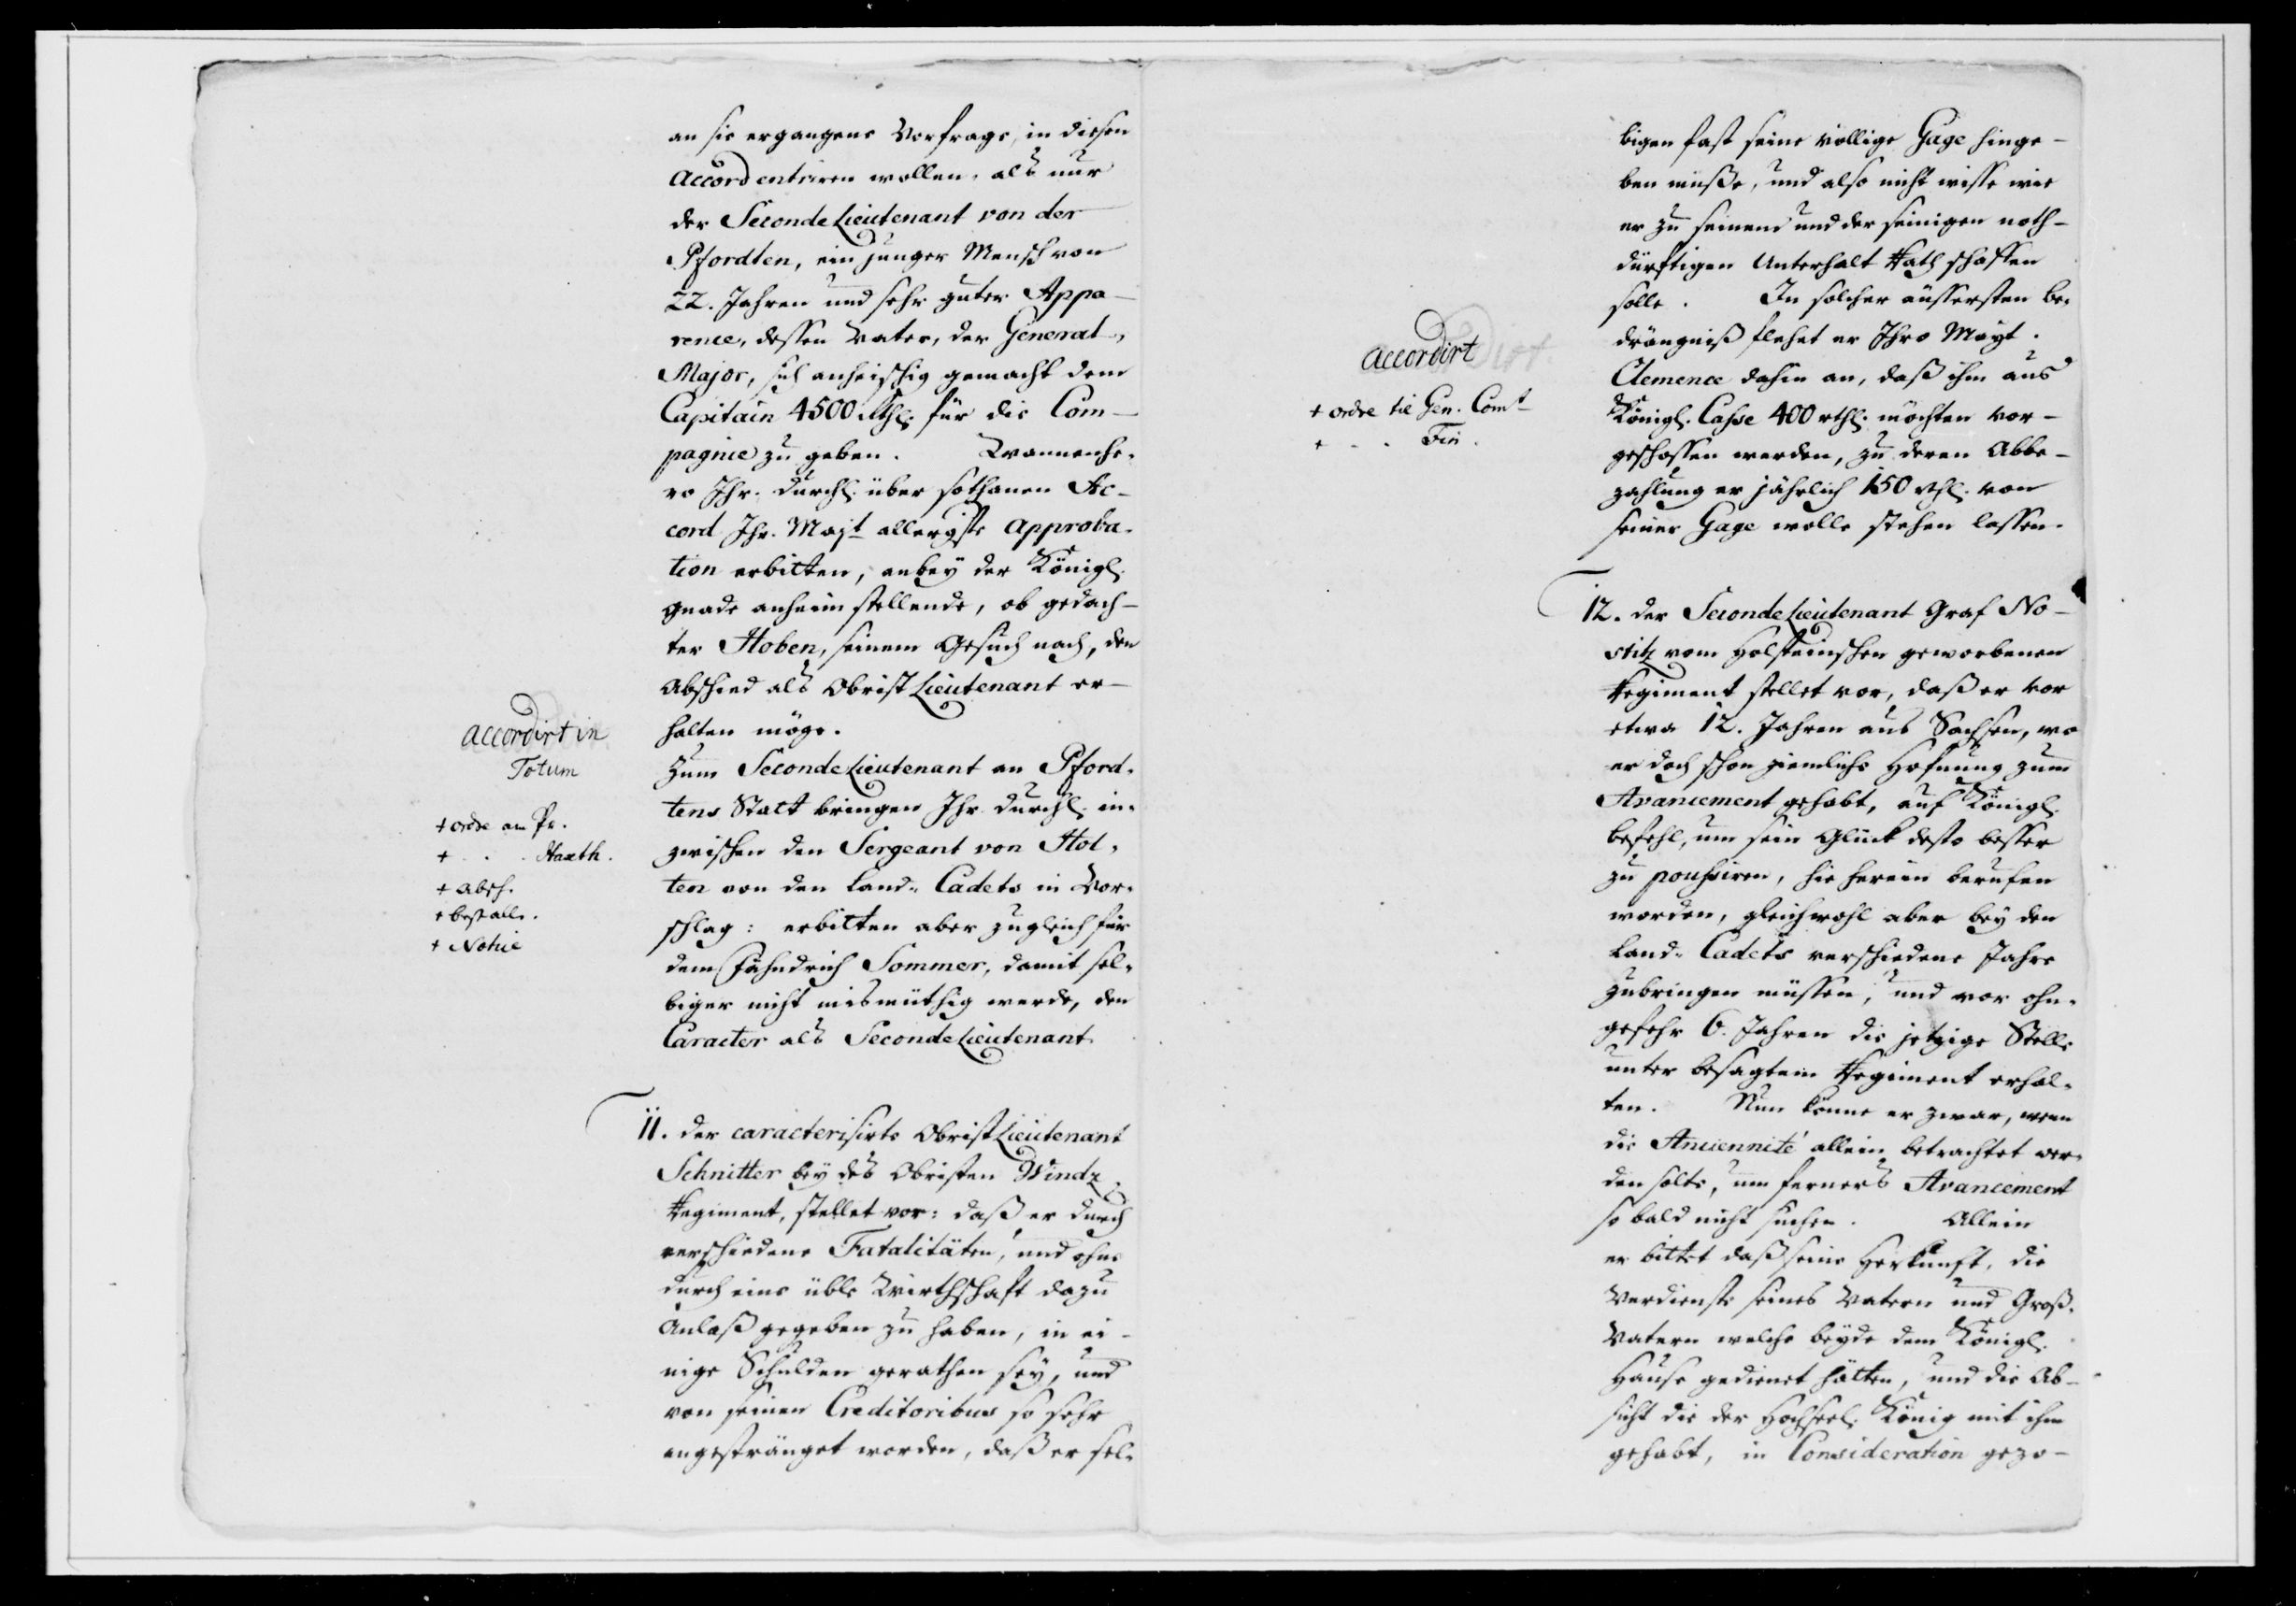 an sie ergangene Vorfrage, in diesen
Accord entriren wollen, als nur
der SecondeLieutenant von der
Pfordten, ein junger Mensch von
22. Jahren und sehr guter Appa-
rence, dessen Vater, der General-
Major, sich anheischig gemacht dem
Capitain 4500 Rthl. für die Com-
pagnie zu geben. Wannenhe-
ro Ihr. Durchl. über sothanen Ac-
cord Ihr. Majt allergste Approba-
tion erbitten, anbey der Königl.
Gnade anheim stellende, ob gedach-
ter Hoben, seinem Gesuch nach, den
Abschied als ObristLieutenant er-
halten möge.
Zum SecondeLieutenant an Pford-
tens Statt bringen Ihr. Durchl. in-
zwischen den Sergeant von Hol-
ten von den Land-Cadets in Vor-
schlag: erbitten aber zugleich für
dem Fähndrich Sommer, damit sel-
biger nicht mismüthig werde, den
Caracter als SecondeLieutenant.
accordirt in
Totum
+ ordre an Pr.
+ . . . Haxth.
+ absch.
+ bestall.
+ Notice
11. der caracterisirte ObristLieutenant
Schnitter bey des Obristen Windz.
Regiment, stellet vor: daß er durch
verschiedene Fatalitäten, und ohne
durch eine üble Wirthschaft dazu
Anlaß gegeben zu haben, in ei-
nige Schulden gerathen sey, und
von seinen Creditoribus so sehr
angestränget worden, daß er sel-
bigen fast seine völlige Gage hinge-
ben müße, und also nicht wisse wie
er zu seinem und der seinigen noth-
dürftigen Unterhalt Rath schaffen
solle. In solcher äussersten be-
drängniß flehet er Ihro Mayt.
Clemence dahin an, daß ihm aus
Königl. Casse 400 rthl. möchten vor-
geschossen werden, zu deren Abbe-
zahlung er jährlich 150 Rthl. von
seiner Gage wolle stehen lassen.
accordirt
+ ordre til Gen. Comt
+ . . Fin.
12. der SecondeLieutenant Graf No-
stitz vom Holsteinschen geworbenen
Regiment stellet vor, daß er vor
etwa 12. Jahren aus Sachsen, wo
er doch schon ziemliche Hofnung zum
Avancement gehabt, auf Königl.
befehl, um sein Glück desto besser
zu poussiren, hie herein berufen
worden, gleichwohl aber bey den
Land-Cadets verschiedene Jahre
zubringen müssen, und vor ohn-
gefehr 6. Jahren die jetzige Stelle
unter besagtem Regiment erhal-
ten. Nun könne er zwar, wenn
die Anciennité allein betrachtet wer-
den solte, um ferners Avancement
so bald nicht suchen. Allein
er bittet daß seine Herkunft, die
Verdienste seines Vatern und Groß-
Vatern welche beyde dem Königl.
Hause gedienet hätten, und die Ab-
sicht die der Hochseel. König mit ihm
gehabt, in Consideration gezo-